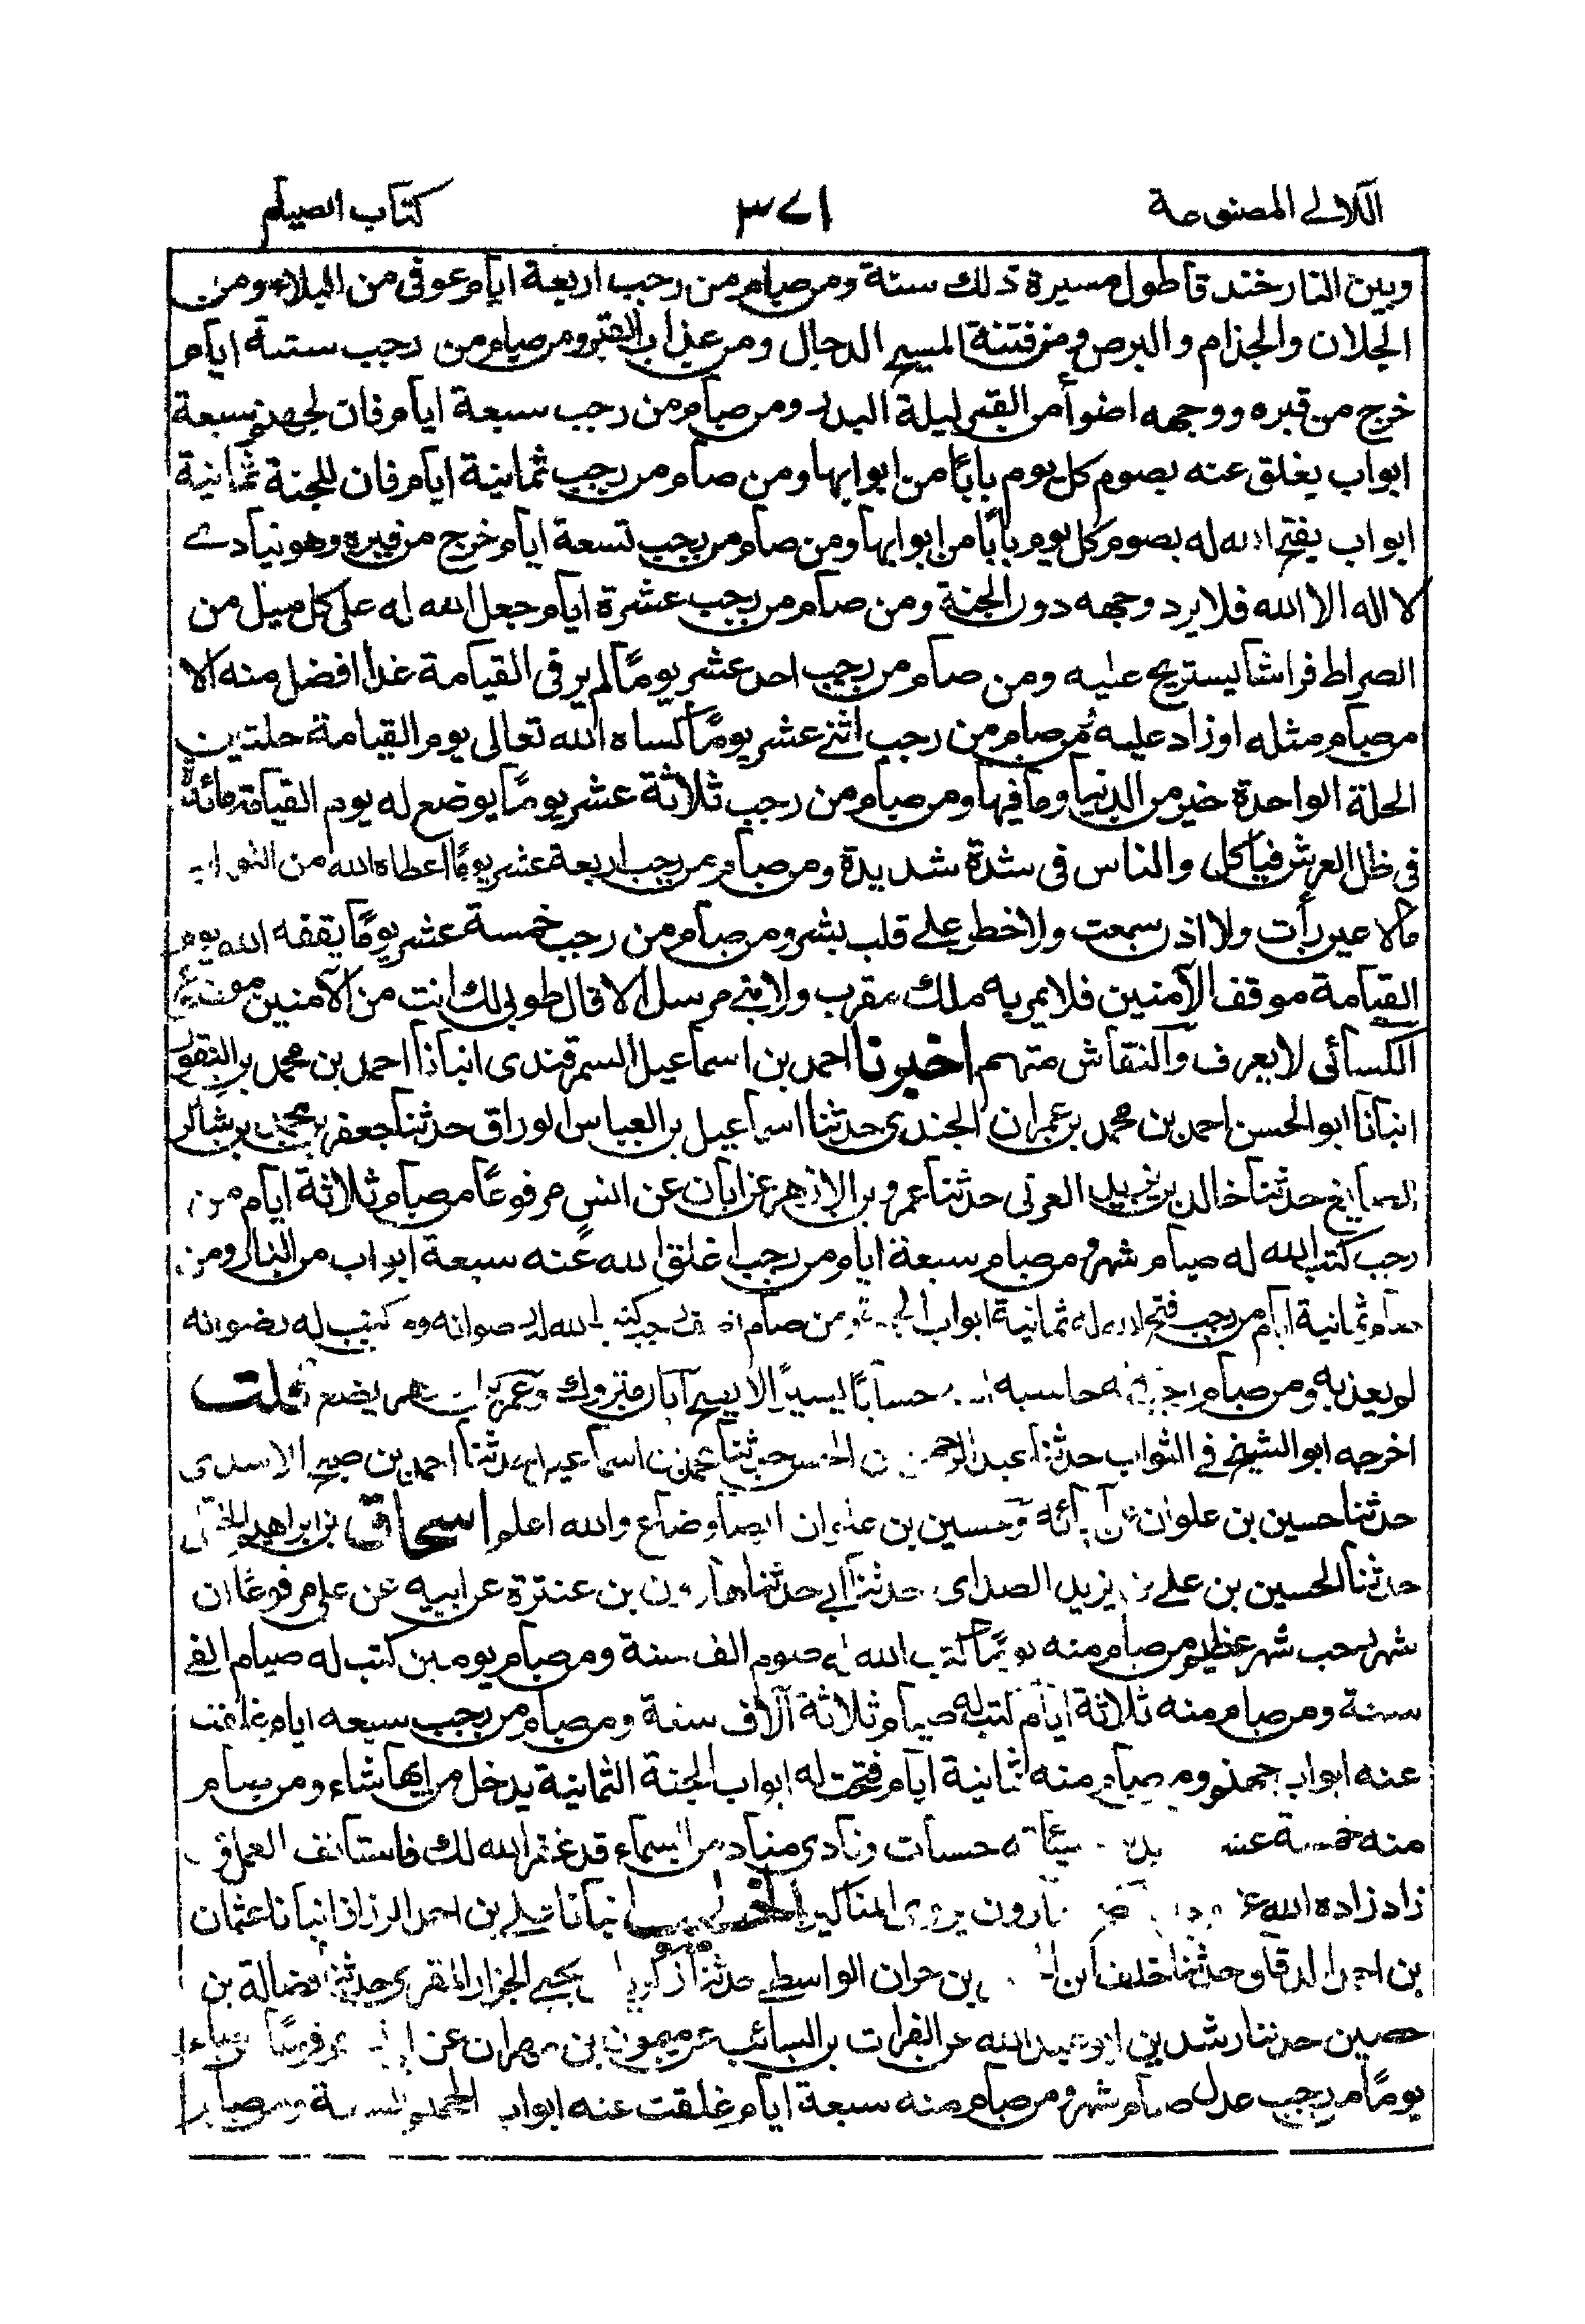 اللآلي المصنوعة ٣٧١ كتاب الصيام
وبين النار خندقا طول مسيرة ذلك سنة ومن صام من رجب اربعة ايام عوفى من البلاء ومن
الجذلان والجذام والبرص ومن فتنة المسيح الدجال ومن عذاب القبر ومن صام من رجب ستة ايام
خرج من قبره ووجهه اضوأ من القمر ليلة البدر ومن صام من رجب سبعة ايام فان لجهنم سبعة
ابواب يغلق عنه بصوم كل يوم بابًا من ابوابها ومن صام من رجب ثمانية ايام فان للجنة ثمانية
ابواب يفتح الله له بصوم كل يوم بابًا من ابوابها ومن صام من رجب تسعة ايام خرج من قبره وهو ينادي
لا اله الا الله فلا يرد وجهه دون الجنة ومن صام من رجب عشرة ايام جعل الله له على كل ميل من
الصراط فراشا يستريح عليه ومن صام من رجب احد عشر يومًا لم ير فى القيامة غدا افضل منه الا
من صام مثله او زاد عليه ومن صام من رجب اثنى عشر يومًا كساه الله تعالى يوم القيامة حلتين
الحلة الواحدة خير من الدنيا وما فيها ومن صام من رجب ثلاثة عشر يومًا يوضع له يوم القيامة مائدة
فى ظل العرش فياكل والناس فى شدة شديدة ومن صام من رجب اربعة عشر يومًا اعطاه الله من الثواب
ما لا عين رأت ولا اذن سمعت ولا خطر على قلب بشر ومن صام من رجب خمسة عشر يومًا يقفه الله يوم
القيامة موقف الآمنين فلا يمر به ملك مقرب ولا نبي مرسل الا قال طوبى لك انت من الآمنين موضوع
الكسائى لا يعرف والنقاش متهم اخبرنا احمد بن اسماعيل السمرقندى انبانا احمد بن محمد بن النقور
انبانا ابو الحسن احمد بن محمد بن عمران الجندى حدثنا اسماعيل بن العباس الوراق حدثنا جعفر بن محمد بن شاكر
الصايغ حدثنا خالد بن يزيد العرنى حدثنا عمرو بن الازهر عن ابان عن انس مرفوعًا من صام ثلاثة ايام من
رجب كتب الله له صيام شهر ومن صام سبعة ايام من رجب اغلق الله عنه سبعة ابواب من النار ومن
صام ثمانية ايام من رجب فتح الله له ثمانية ابواب الجنة ومن صام نصف رجب كتب الله له رضوانه ومن كتب له رضوانه
لم يعذبه ومن صام رجب حاسبه حسابًا يسيرًا لا يصح ابان متروك وعمرو بن الازهر يضع قلت
اخرجه ابو الشيخ في الثواب حدثنا عبد الرحمن بن الحسن حدثنا اسماعيل حدثنا احمد بن الاسدى
حدثنا حسين بن علوان عن ابان به وحسين بن علوان ايضا وضاع والله اعلم اسحاق بن ابراهيم الختلى
حدثنا الحسين بن علي بن يزيد الصداى حدثنا ابي حدثنا هارون بن عنترة عن ابيه عن على مرفوعًا ان
شهر رجب شهر عظيم من صام منه يومًا كتب الله له صوم الف سنة ومن صام يومين كتب له صيام الفى
سنة ومن صام منه ثلاثة ايام كتب له صيام ثلاثة آلاف سنة ومن صام من رجب سبعة ايام غلقت
عنه ابواب جهنم ومن صام منه ثمانية ايام فتحت له ابواب الجنة الثمانية يدخل من ايها شاء ومن صام
منه خمسة عشر بدلت سيئاته حسنات ونادى مناد من السماء قد غفر الله لك فاستانف العمل ومن
زاد زاده الله هارون يروى المناكير الخطيب انبانا علي بن احمد الرزاز انبانا عثمان
بن احمد الدقاق حدثنا خلف بن الواسطي حدثنا يحيى الجزار المقرى حدثنا فضالة بن
حصين حدثنا رشد بن ابو عبد الله عن الفرات بن السائب عن ميمون بن مهران عن مرفوعًا من صام
يومًا من رجب عدل صيام شهر ومن صام منه سبعة ايام غلقت عنه ابواب الجحيم السبعة ومن صام